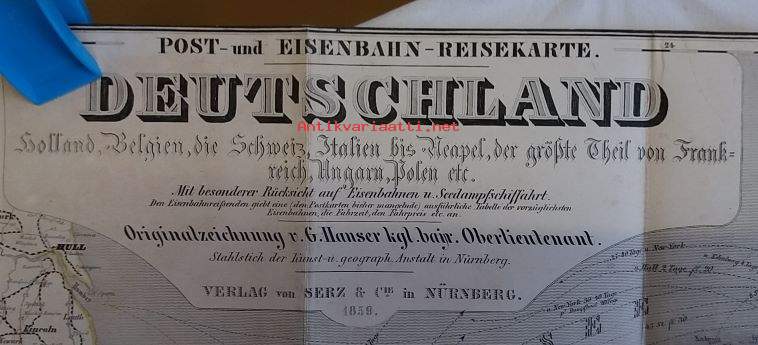 POST- und EISENBAHN-REISEKARTE.
24
DEUTSCHLAND
Antikvariaatti.net
Holland, Belgien, die Schweiz, Italien bis Neapel, der größte Theil von Frank=
reich, Ungarn, Polen etc.
Mit besonderer Rücksicht auf Eisenbahnen u. Seedampfschiffahrt.
Den Eisenbahnreisenden giebt eine (den Postkarten bisher mangelnde) ausführliche Tabelle der vorzüglichsten
Eisenbahnen, die Fahrzeit, den Fahrpreis etc. an.
Originalzeichnung v. G. Hanser kgl. bayr. Oberlieutenant.
Stahlstich der Kunst- u. geograph. Anstalt in Nürnberg.
VERLAG von SERZ & Cie in NÜRNBERG.
1859.
HULL
Lincoln
Newark
Louth
n. New-York
n. Hull 2 Tage